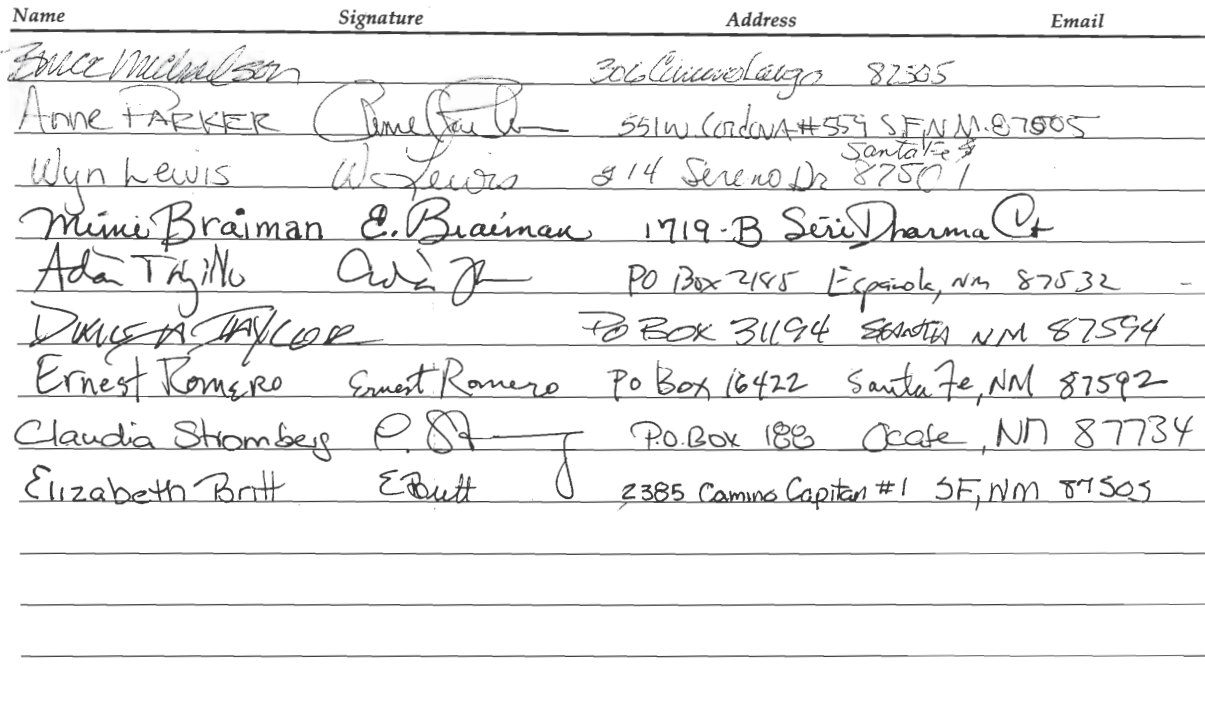 Name Signature Address Email
Bruce Michaelson 306 Camino Largo 87505
Anne PARKER Anne 551 W. CordovA #559 SF, NM. 87505
Santa Fe
Wyn Lewis W Lewis 14 Sereno Dr 87501
Mimi Braiman E. Braiman 1719-B Siri Dharma Ct
Adán PO Box 2185 Española, NM 87532
TAYLOR PO BOX 31194 NM 87594
Ernest Romero Ernest Romero Po Box 16422 Santa Fe, NM 87592
Claudia Stromberg P.O. Box 188 Ocate, NM 87734
Elizabeth Britt E Britt 2385 Camino Capitan #1 SF, NM 87505